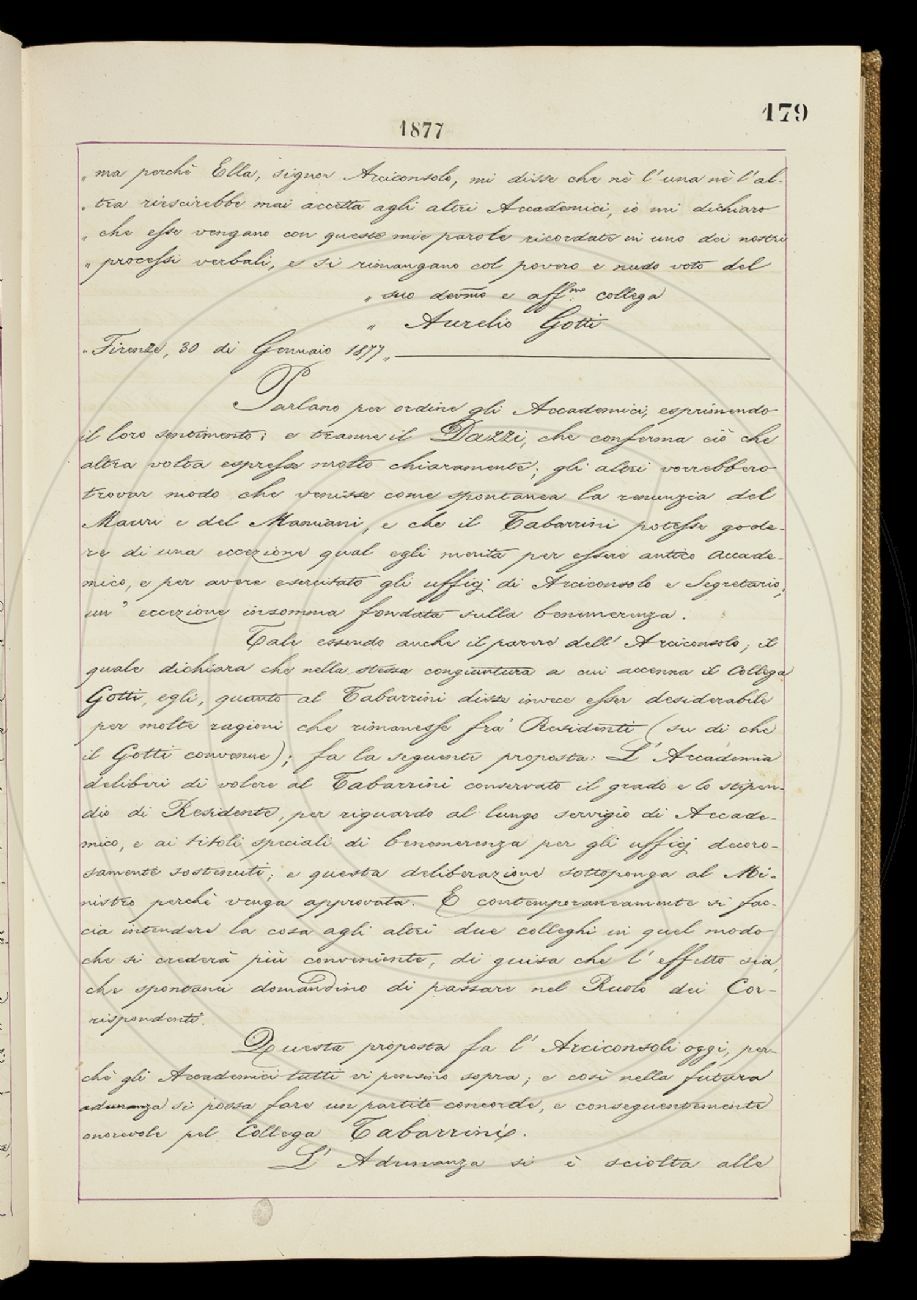 179
1877
" ma perchè Ella, signor Arciconsolo, mi disse che nè l'una nè l'al-
" tra riescirebbe mai accetta agli altri Accademici, io mi dichiaro
" che esse vengano con queste mie parole ricordate in uno dei nostri
" processi verbali, e si rimangano col povero e nudo voto del
" suo devmo e affmo. collega
" Aurelio Gotti
" Firenze, 30 di Gennaio 1877 "
Parlano per ordine gli Accademici, esprimendo
il loro sentimento; e tranne il Dazzi, che conferma ciò che
altra volta espresse molto chiaramente; gli altri vorrebbero
trovar modo che venisse come spontanea la renunzia del
Mauri e del Mamiani, e che il Tabarrini potesse gode-
re di una eccezione qual egli merita per essere antico accade-
mico, e per avere esercitato gli ufficj di Arciconsolo e Segretario;
un' eccezione insomma fondata sulla benemerenza.
Tale essendo anche il parere dell' Arciconsolo; il
quale dichiara che nella stessa congiuntura a cui accenna il Collega
Gotti, egli, quanto al Tabarrini disse invece esser desiderabile
per molte ragioni che rimanesse fra' Residenti (su di che
il Gotti convenne); fa la seguente proposta: L' Accademia
deliberi di volere al Tabarrini conservato il grado e lo stipen-
dio di Residente, per riguardo al lungo servigio di Accade-
mico, e ai titoli speciali di benemerenza per gli ufficj decoro-
samente sostenuti; e questa deliberazione sottoponga al Mi-
nistro perchè venga approvata. E contemporaneamente si fac-
cia intendere la cosa agli altri due colleghi in quel modo
che si crederà più conveniente, di guisa che l' effetto sia,
che spontanei domandino di passare nel Ruolo dei Cor-
rispondenti.
Questa proposta fa l' Arciconsoli oggi, per-
chè gli Accademici tutti vi pensino sopra; e così nella futura
adunanza si possa fare un partito concorde, e conseguentemente
onorevole pel Collega Tabarrini.
L' Adunanza si è sciolta alle